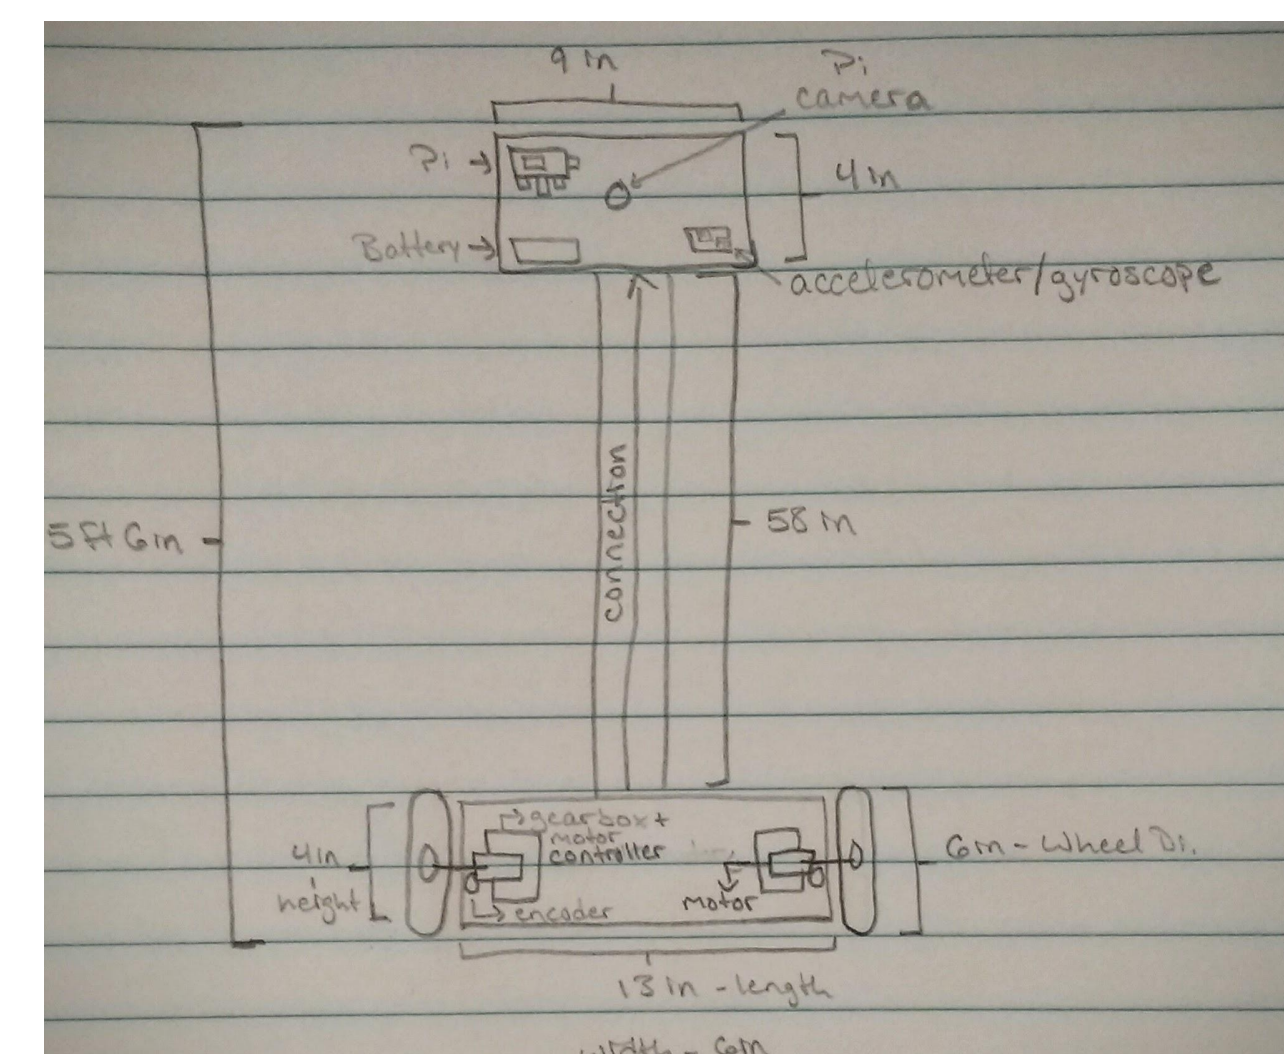 9 in
Pi
camera
Pi
4 in
Battery
accelerometer/gyroscope
connection
5 ft 6 in
58 in
gearbox +
motor
controller
4 in
height
6 in - Wheel Di.
motor
encoder
13 in - length
width - 6in